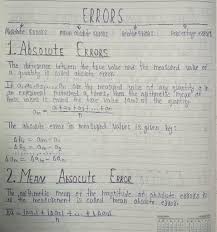 ERRORS
Absolute Errors Mean absolute errors Relative Errors Percentage errors
1. ABSOLUTE ERRORS
The difference between the true value and the measured value of
a quantity is called absolute error
If a₁, a₂, a₃, ... aₙ are the measured value of any quantity a in
an experiment performed n times, then the arithmetic mean of
these values is called the true value (aₘ) of the quantity.
aₘ = a₁ + a₂ + a₃ + ... + aₙ
n
The absolute error in measured values is given by:
Δa₁ = aₘ - a₁
Δa₂ = aₘ - a₂
Δaₙ = aₘ - aₙ
2. MEAN ABSOLUTE ERROR
The arithmetic mean of the magnitude of absolute errors in
all the measurement is called mean absolute error.